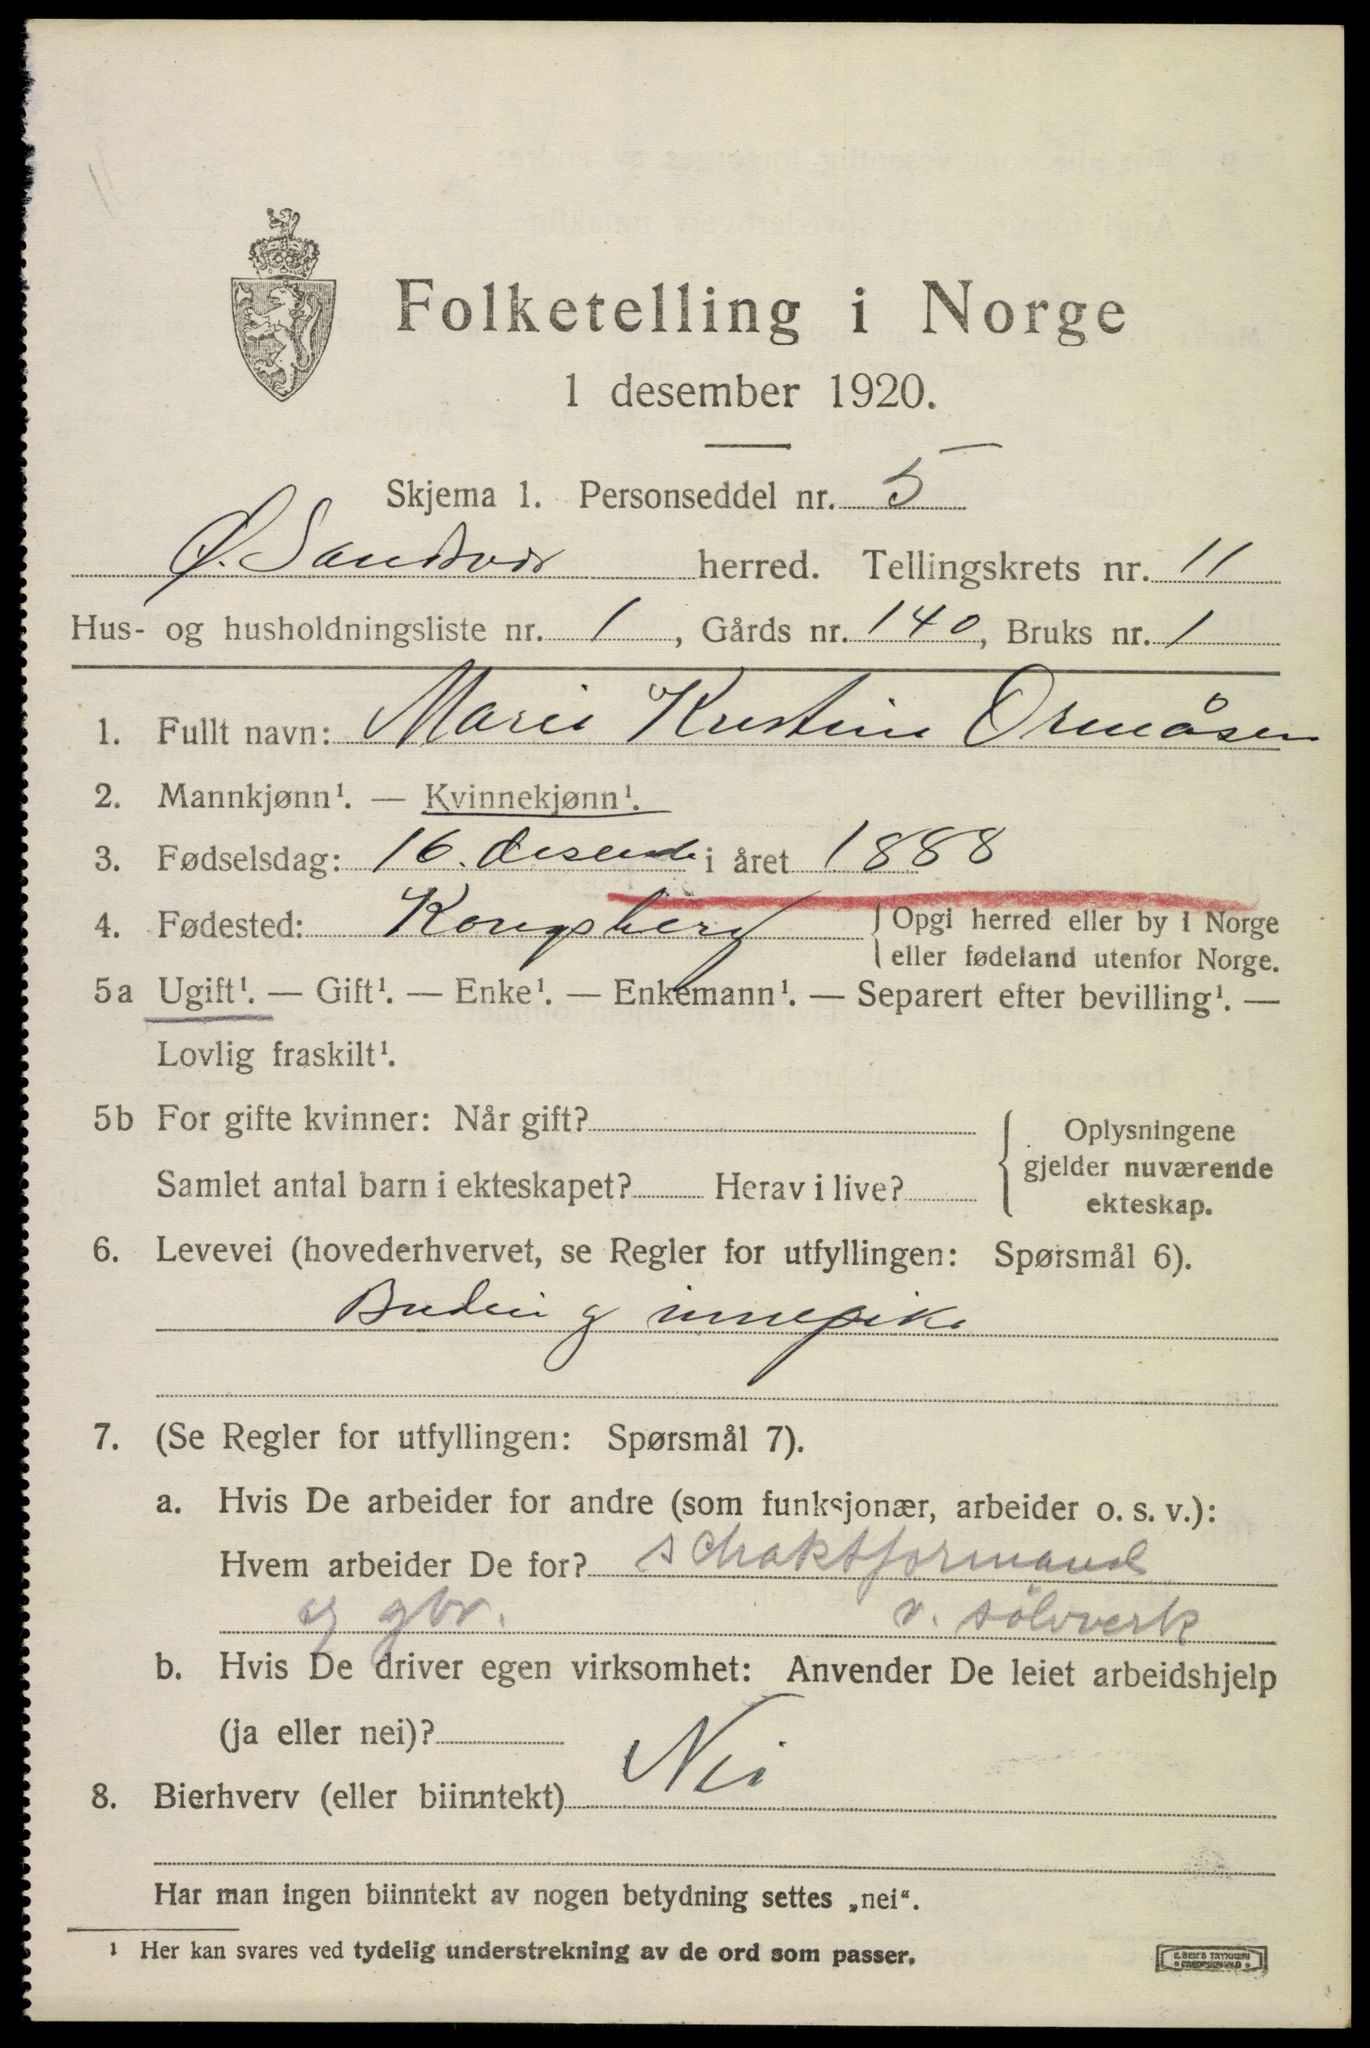 Folketelling i Norge
1 desember 1920.
Skjema 1. Personseddel nr. 5
Ø. Sandsvær herred. Tellingskrets nr. 11
Hus- og husholdningsliste nr. 1, Gårds nr. 140, Bruks nr. 1
1. Fullt navn: Marie Kristine Ormåsen
2. Mannkjønn¹. — Kvinnekjønn¹.
3. Fødselsdag: 16. desember i året 1888
4. Fødested: Kongsberg { Opgi herred eller by i Norge
eller fødeland utenfor Norge.
5a Ugift¹. — Gift¹. — Enke¹. — Enkemann¹. — Separert efter bevilling¹. —
Lovlig fraskilt¹.
5b For gifte kvinner: Når gift?
Samlet antal barn i ekteskapet? Herav i live?
Oplysningene
gjelder nuværende
ekteskap.
6. Levevei (hovederhvervet, se Regler for utfyllingen: Spørsmål 6).
Budeie og innepike
7. (Se Regler for utfyllingen: Spørsmål 7).
a. Hvis De arbeider for andre (som funksjonær, arbeider o. s. v.):
Hvem arbeider De for? schaktformand
og gbr. v. sölvverk
b. Hvis De driver egen virksomhet: Anvender De leiet arbeidshjelp
(ja eller nei)?
8. Bierhverv (eller biinntekt) Nei
Har man ingen biinntekt av nogen betydning settes „nei“.
¹ Her kan svares ved tydelig understrekning av de ord som passer.